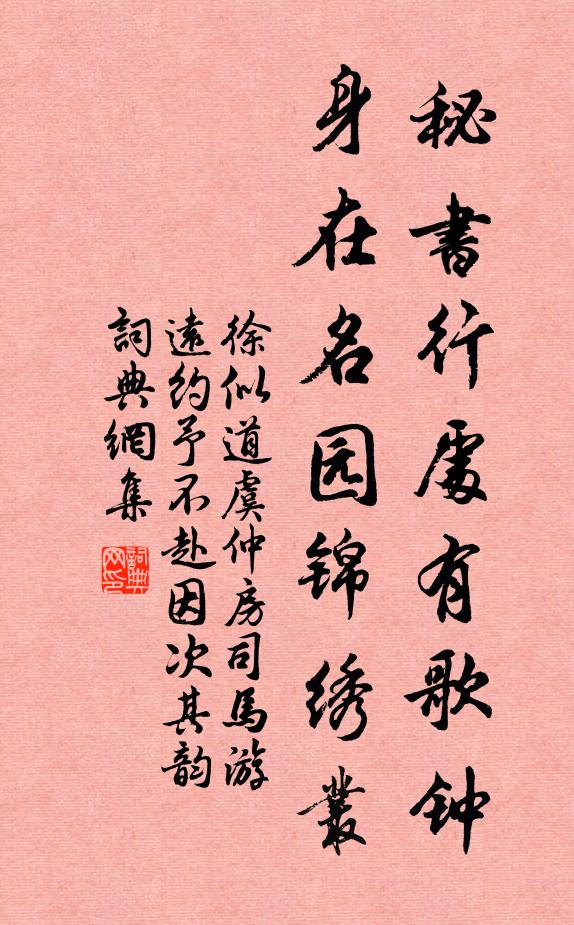 秘書行處有歌钟
身在名园锦绣叢
徐似道虞仲房司馬游
遠约予不赴因次其韵
詞典網集
詞典网印